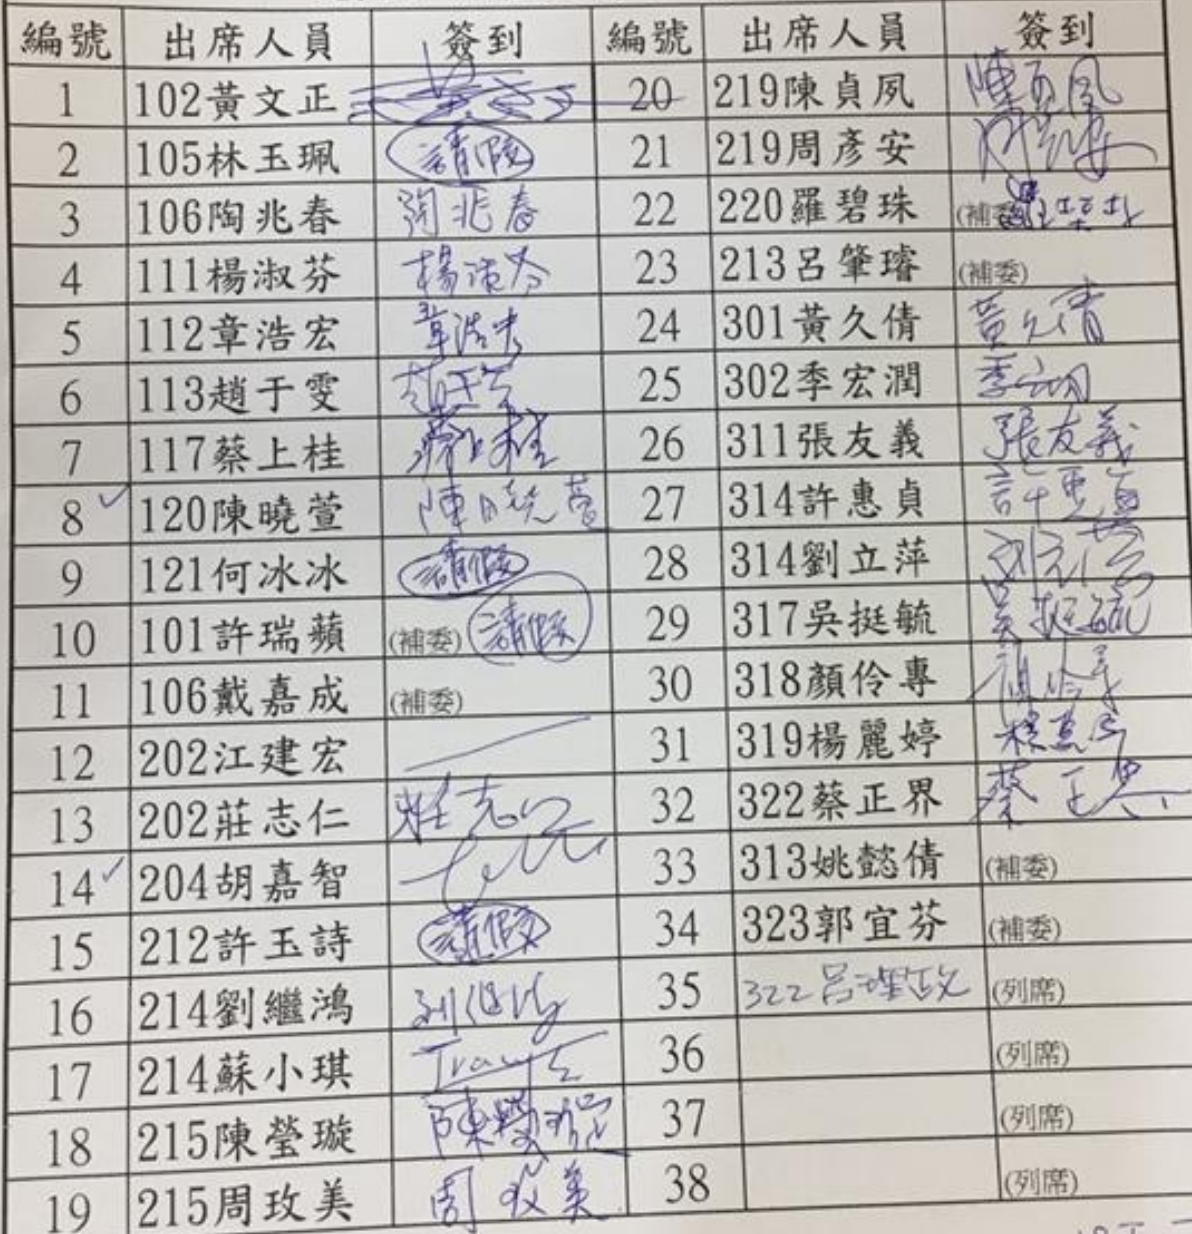 編號 出席人員 簽到 編號 出席人員 簽到
1 102黃文正 20 219陳貞夙 陳貞夙
2 105林玉珮 請假 21 219周彥安
3 106陶兆春 陶兆春 22 220羅碧珠 (補委)
4 111楊淑芬 楊淑芬 23 213呂肇璿 (補委)
5 112章浩宏 章浩宏 24 301黃久倩 黃久倩
6 113趙于雯 25 302季宏潤 季宏潤
7 117蔡上桂 蔡上桂 26 311張友義 張友義
8 120陳曉萱 陳曉萱 27 314許惠貞 許惠貞
9 121何冰冰 請假 28 314劉立萍
10 101許瑞蘋 (補委) 請假 29 317吳挺毓 吳挺毓
11 106戴嘉成 (補委) 30 318顏伶專
12 202江建宏 31 319楊麗婷
13 202莊志仁 莊志仁 32 322蔡正界 蔡正界
14 204胡嘉智 33 313姚懿倩 (補委)
15 212許玉詩 請假 34 323郭宜芬 (補委)
16 214劉繼鴻 35 322呂理政 (列席)
17 214蘇小琪 36 (列席)
18 215陳瑩璇 陳瑩璇 37 (列席)
19 215周玫美 周玫美 38 (列席)